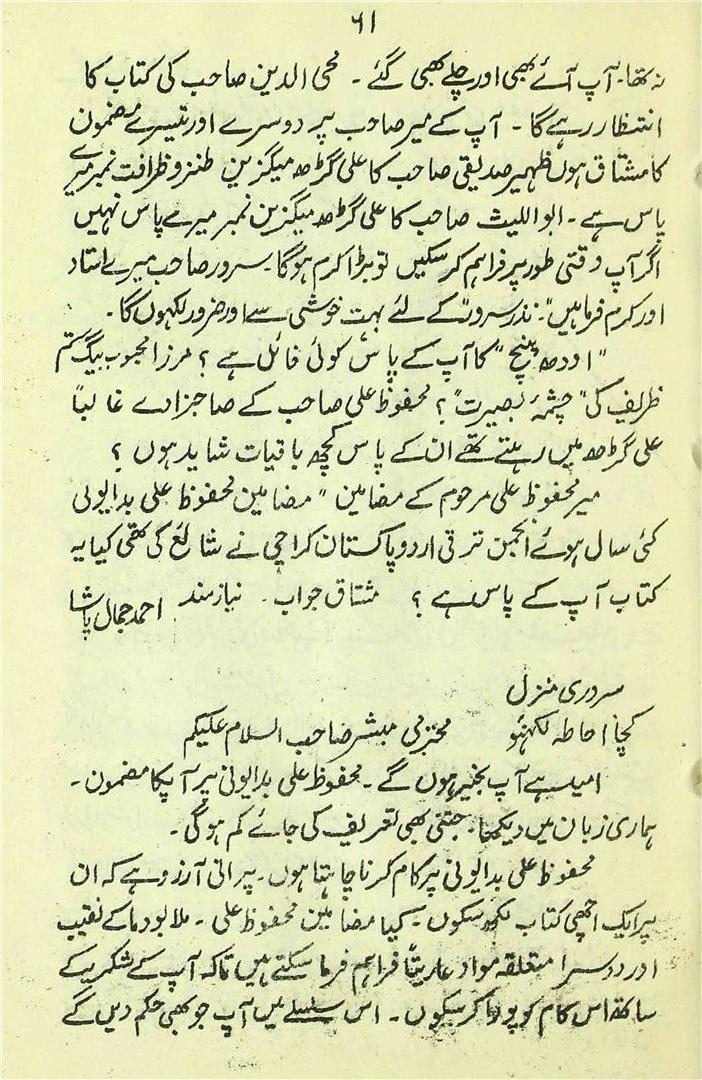 ۶۱
نہ تھا۔ آپ آئے بھی اور چلے بھی گئے ۔ محی الدین صاحب کی کتاب کا
انتظار رہے گا ۔ آپ کے میر صاحب پر دوسرے اور تیسرے مضمون
کا مشتاق ہوں ظہیر صدیقی صاحب کا علی گڑھ میگزین طنز و ظرافت نمبر میرے
پاس ہے ۔ ابواللیث صاحب کا علی گڑھ میگزین نمبر میرے پاس نہیں
اگر آپ وقتی طور پر فراہم کر سکیں تو بڑا کرم ہوگا۔ سرور صاحب میرے استاد
اور کرم فرما ہیں "نذر سرور" کے لئے بہت خوشی سے اور ضرور لکھوں گا ۔
"اودھ پنچ" کا آپ کے پاس کوئی فائل ہے ؟ مرزا مچھو بیگ ستم
ظریف کی "چشمۂ بصیرت" ؟ محفوظ علی صاحب کے صاحبزادے غالباً
علی گڑھ میں رہتے تھے ان کے پاس کچھ باقیات شاید ہوں ؟
میر محفوظ علی مرحوم کے مضامین "مضامین محفوظ علی بدایونی
کئی سال ہوئے انجمن ترقی اردو پاکستان کراچی نے شائع کی تھی کیا یہ
کتاب آپ کے پاس ہے ؟ مشتاق جواب ۔ نیازمند احمد جمال پاشا
سروری منزل
کچا احاطہ لکھنؤ محترمی مبشر صاحب السلام علیکم
امید ہے آپ بخیر ہوں گے ۔ محفوظ علی بدایونی پر آپکا مضمون ۔
ہماری زبان میں دیکھا۔ جتنی بھی تعریف کی جائے کم ہوگی ۔
محفوظ علی بدایونی پر کام کرنا چاہتا ہوں ۔ پرانی آرزو ہے کہ ان
پر ایک اچھی کتاب لکھ سکوں ۔ کیا مضامین محفوظ علی ۔ ملا بودما کے نقیب
اور دوسرا متعلقہ مواد عاریتاً فراہم فرما سکتے ہیں تاکہ آپ کے شکریے کے
ساتھ اس کام کو پورا کر سکوں ۔ اس سلسلے میں آپ جو بھی حکم دیں گے